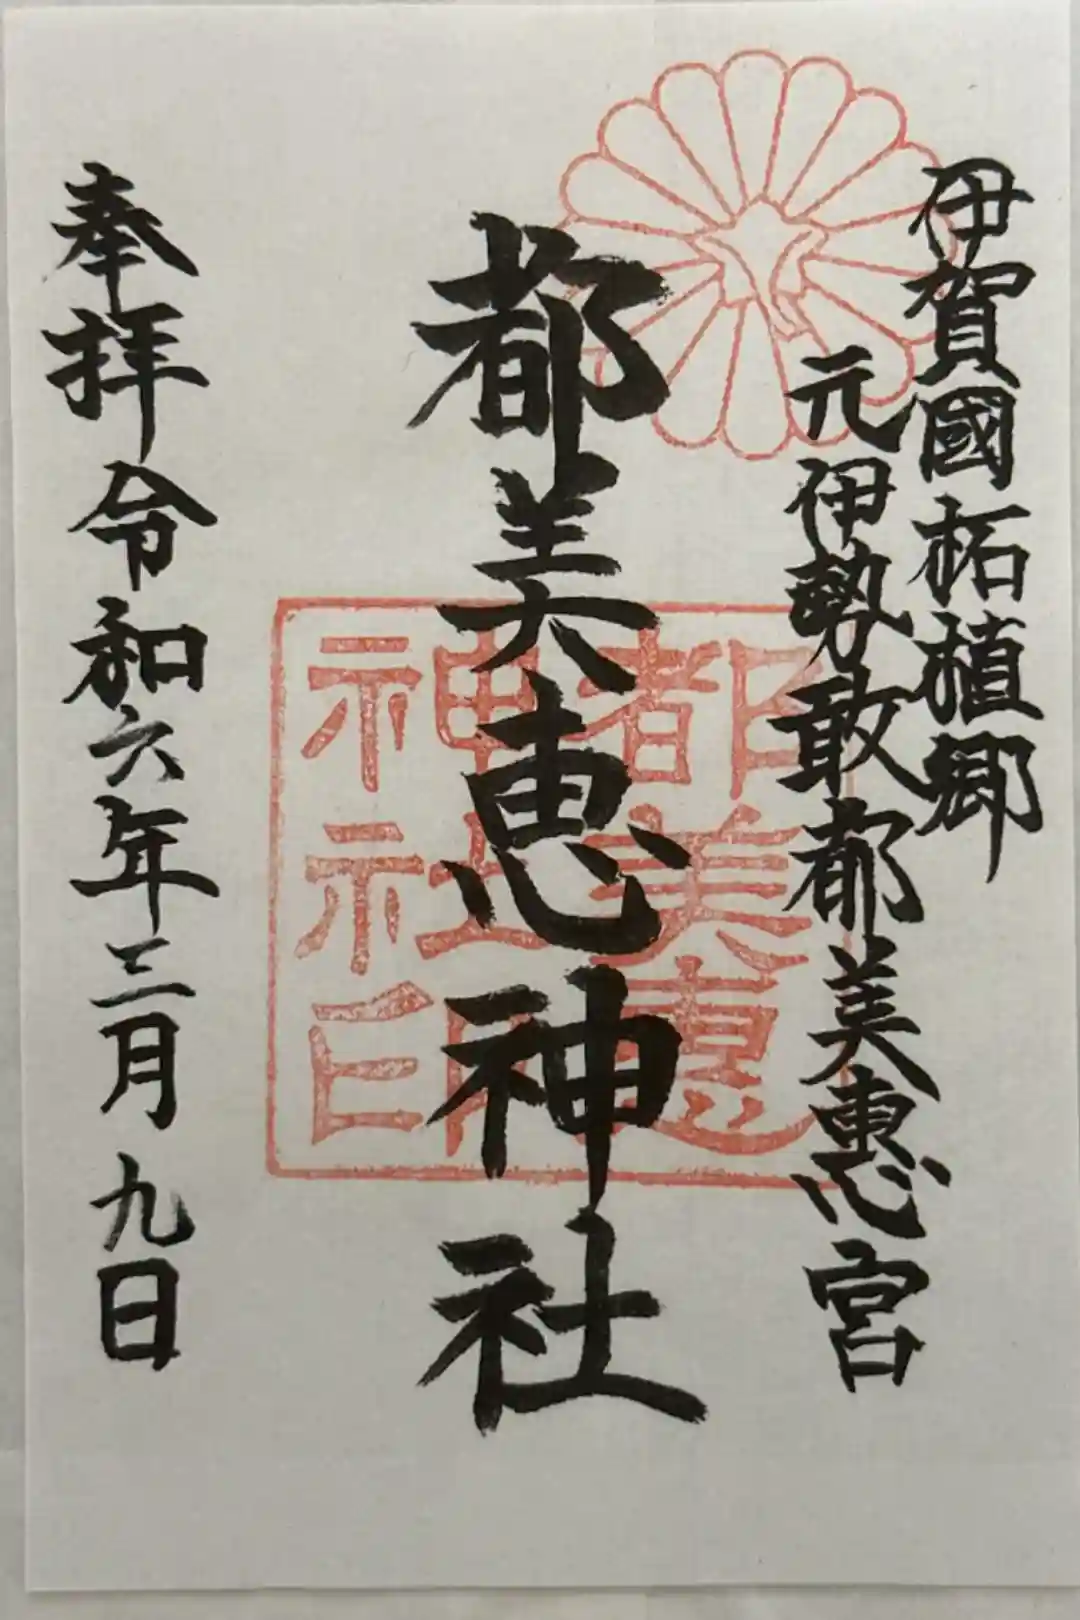 伊賀國柘植郷
元伊勢敢都美恵宮
都美恵神社
都美恵
神社
神社印
奉拝令和六年三月九日